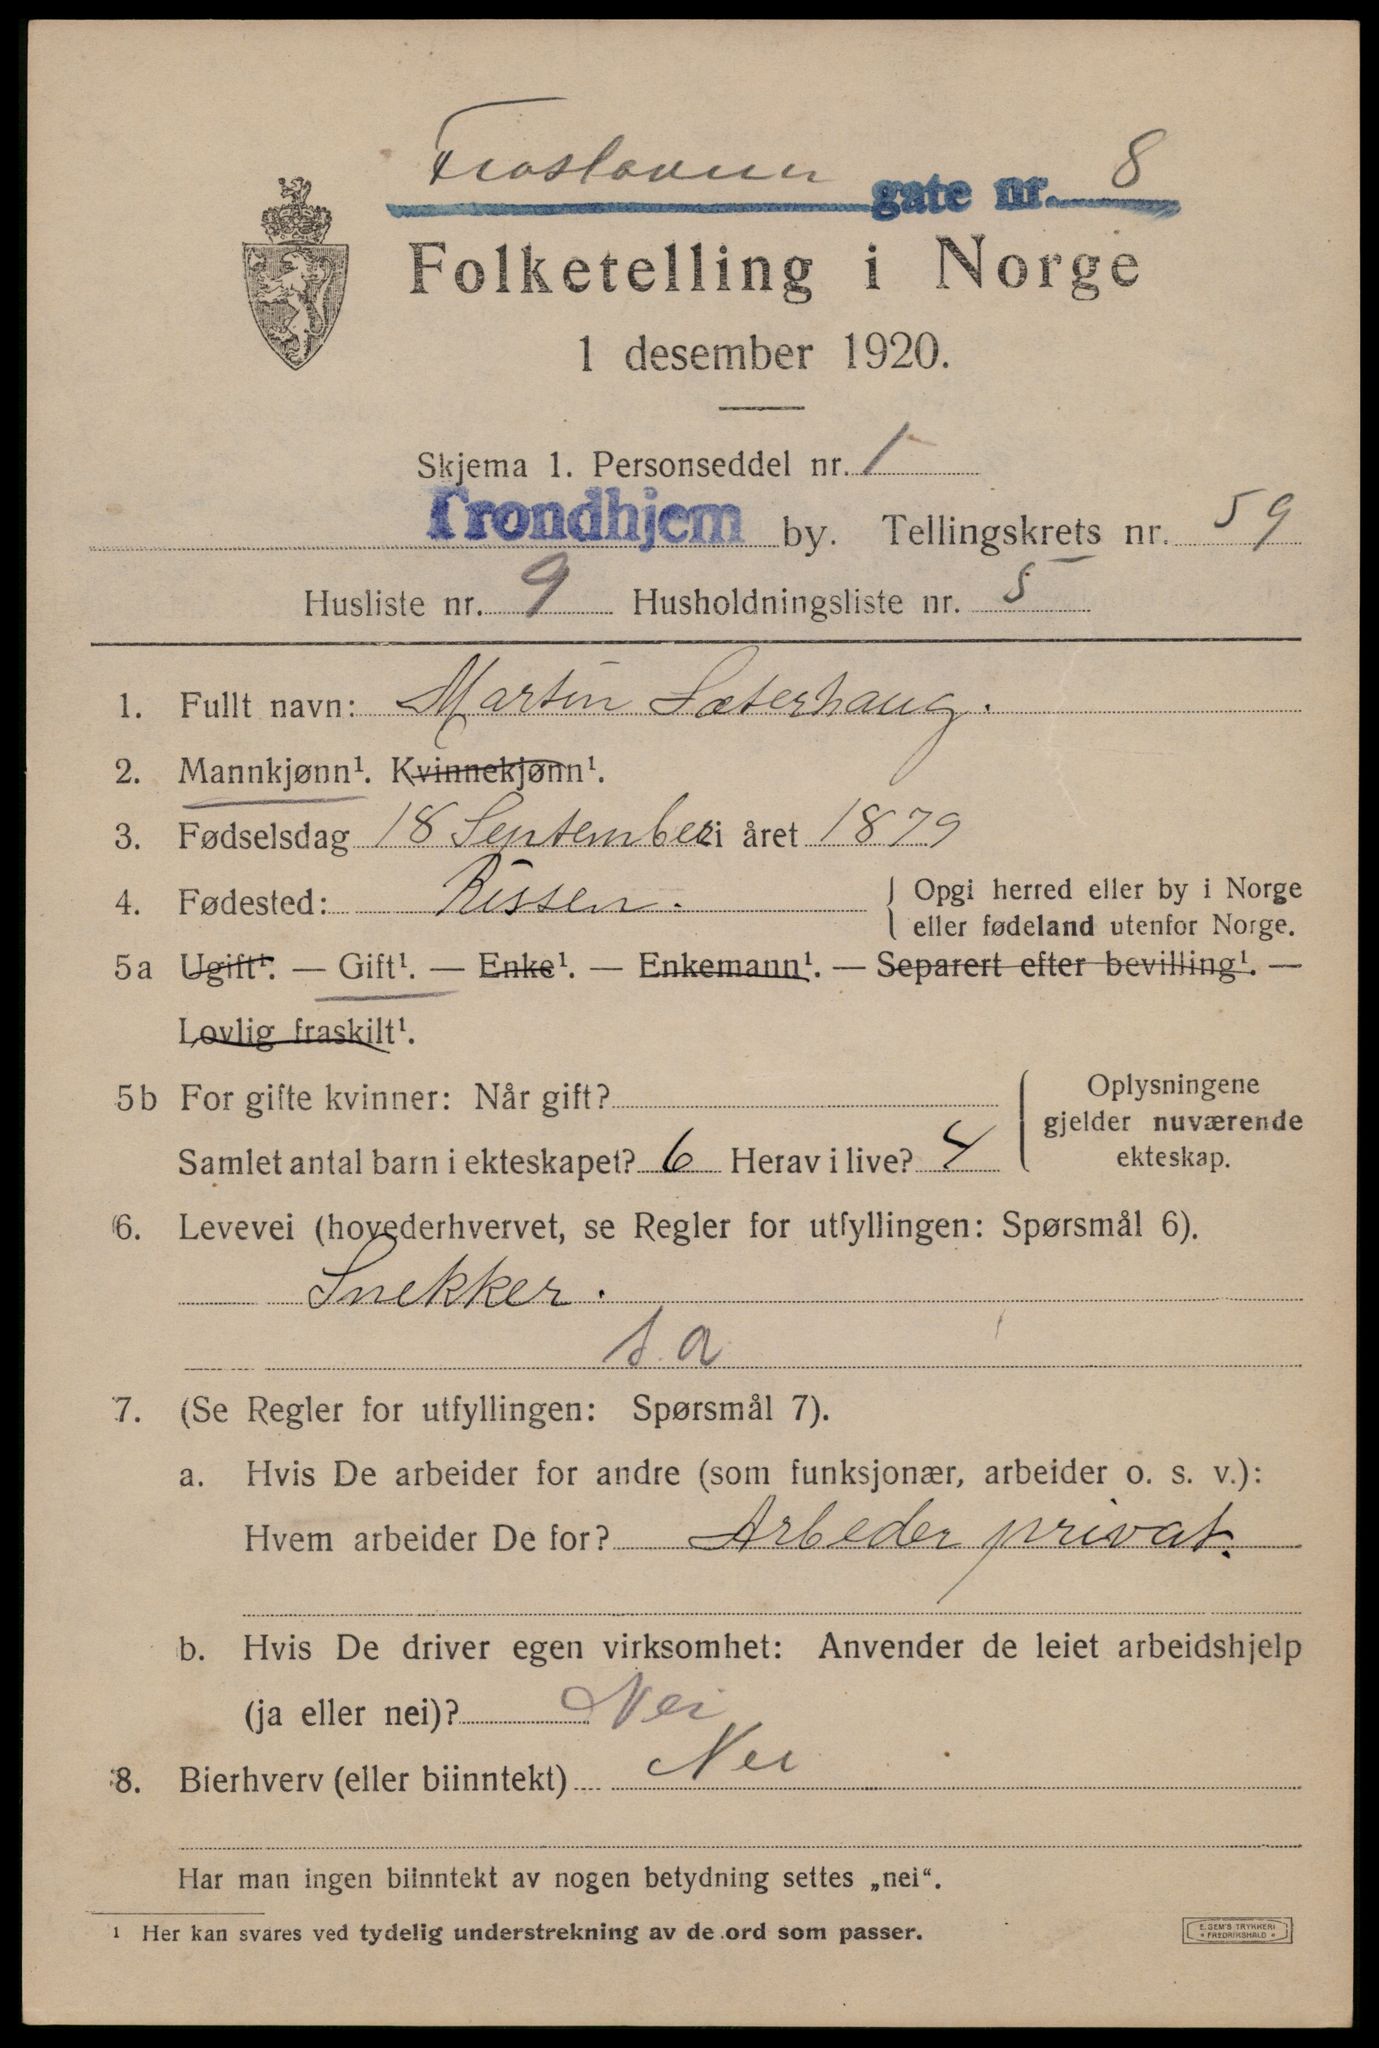 Frostaveien gate nr. 8
Folketelling i Norge
1 desember 1920.
Skjema 1. Personseddel nr. 1
Trondhjem by. Tellingskrets nr. 59
Husliste nr. 9 Husholdningsliste nr. 5
1. Fullt navn: Martin Sæterhaug.
2. Mannkjønn¹. Kvinnekjønn¹.
3. Fødselsdag 18 September i året 1879
4. Fødested: Rissen. Opgi herred eller by i Norge
eller fødeland utenfor Norge.
5a Ugift¹. — Gift¹. — Enke¹. — Enkemann¹. — Separert efter bevilling¹. —
Lovlig fraskilt¹.
5b For gifte kvinner: Når gift?
Samlet antal barn i ekteskapet? 6 Herav i live? 4
Oplysningene
gjelder nuværende
ekteskap.
6. Levevei (hovederhvervet, se Regler for utfyllingen: Spørsmål 6).
Snekker.
s.a
7. (Se Regler for utfyllingen: Spørsmål 7).
a. Hvis De arbeider for andre (som funksjonær, arbeider o. s. v.):
Hvem arbeider De for? Arbeder privat.
b. Hvis De driver egen virksomhet: Anvender de leiet arbeidshjelp
(ja eller nei)? Nei
8. Bierhverv (eller biinntekt) Nei
Har man ingen biinntekt av nogen betydning settes „nei“.
¹ Her kan svares ved tydelig understrekning av de ord som passer.
E. SEM'S TRYKKERI
* FREDRIKSHALD *